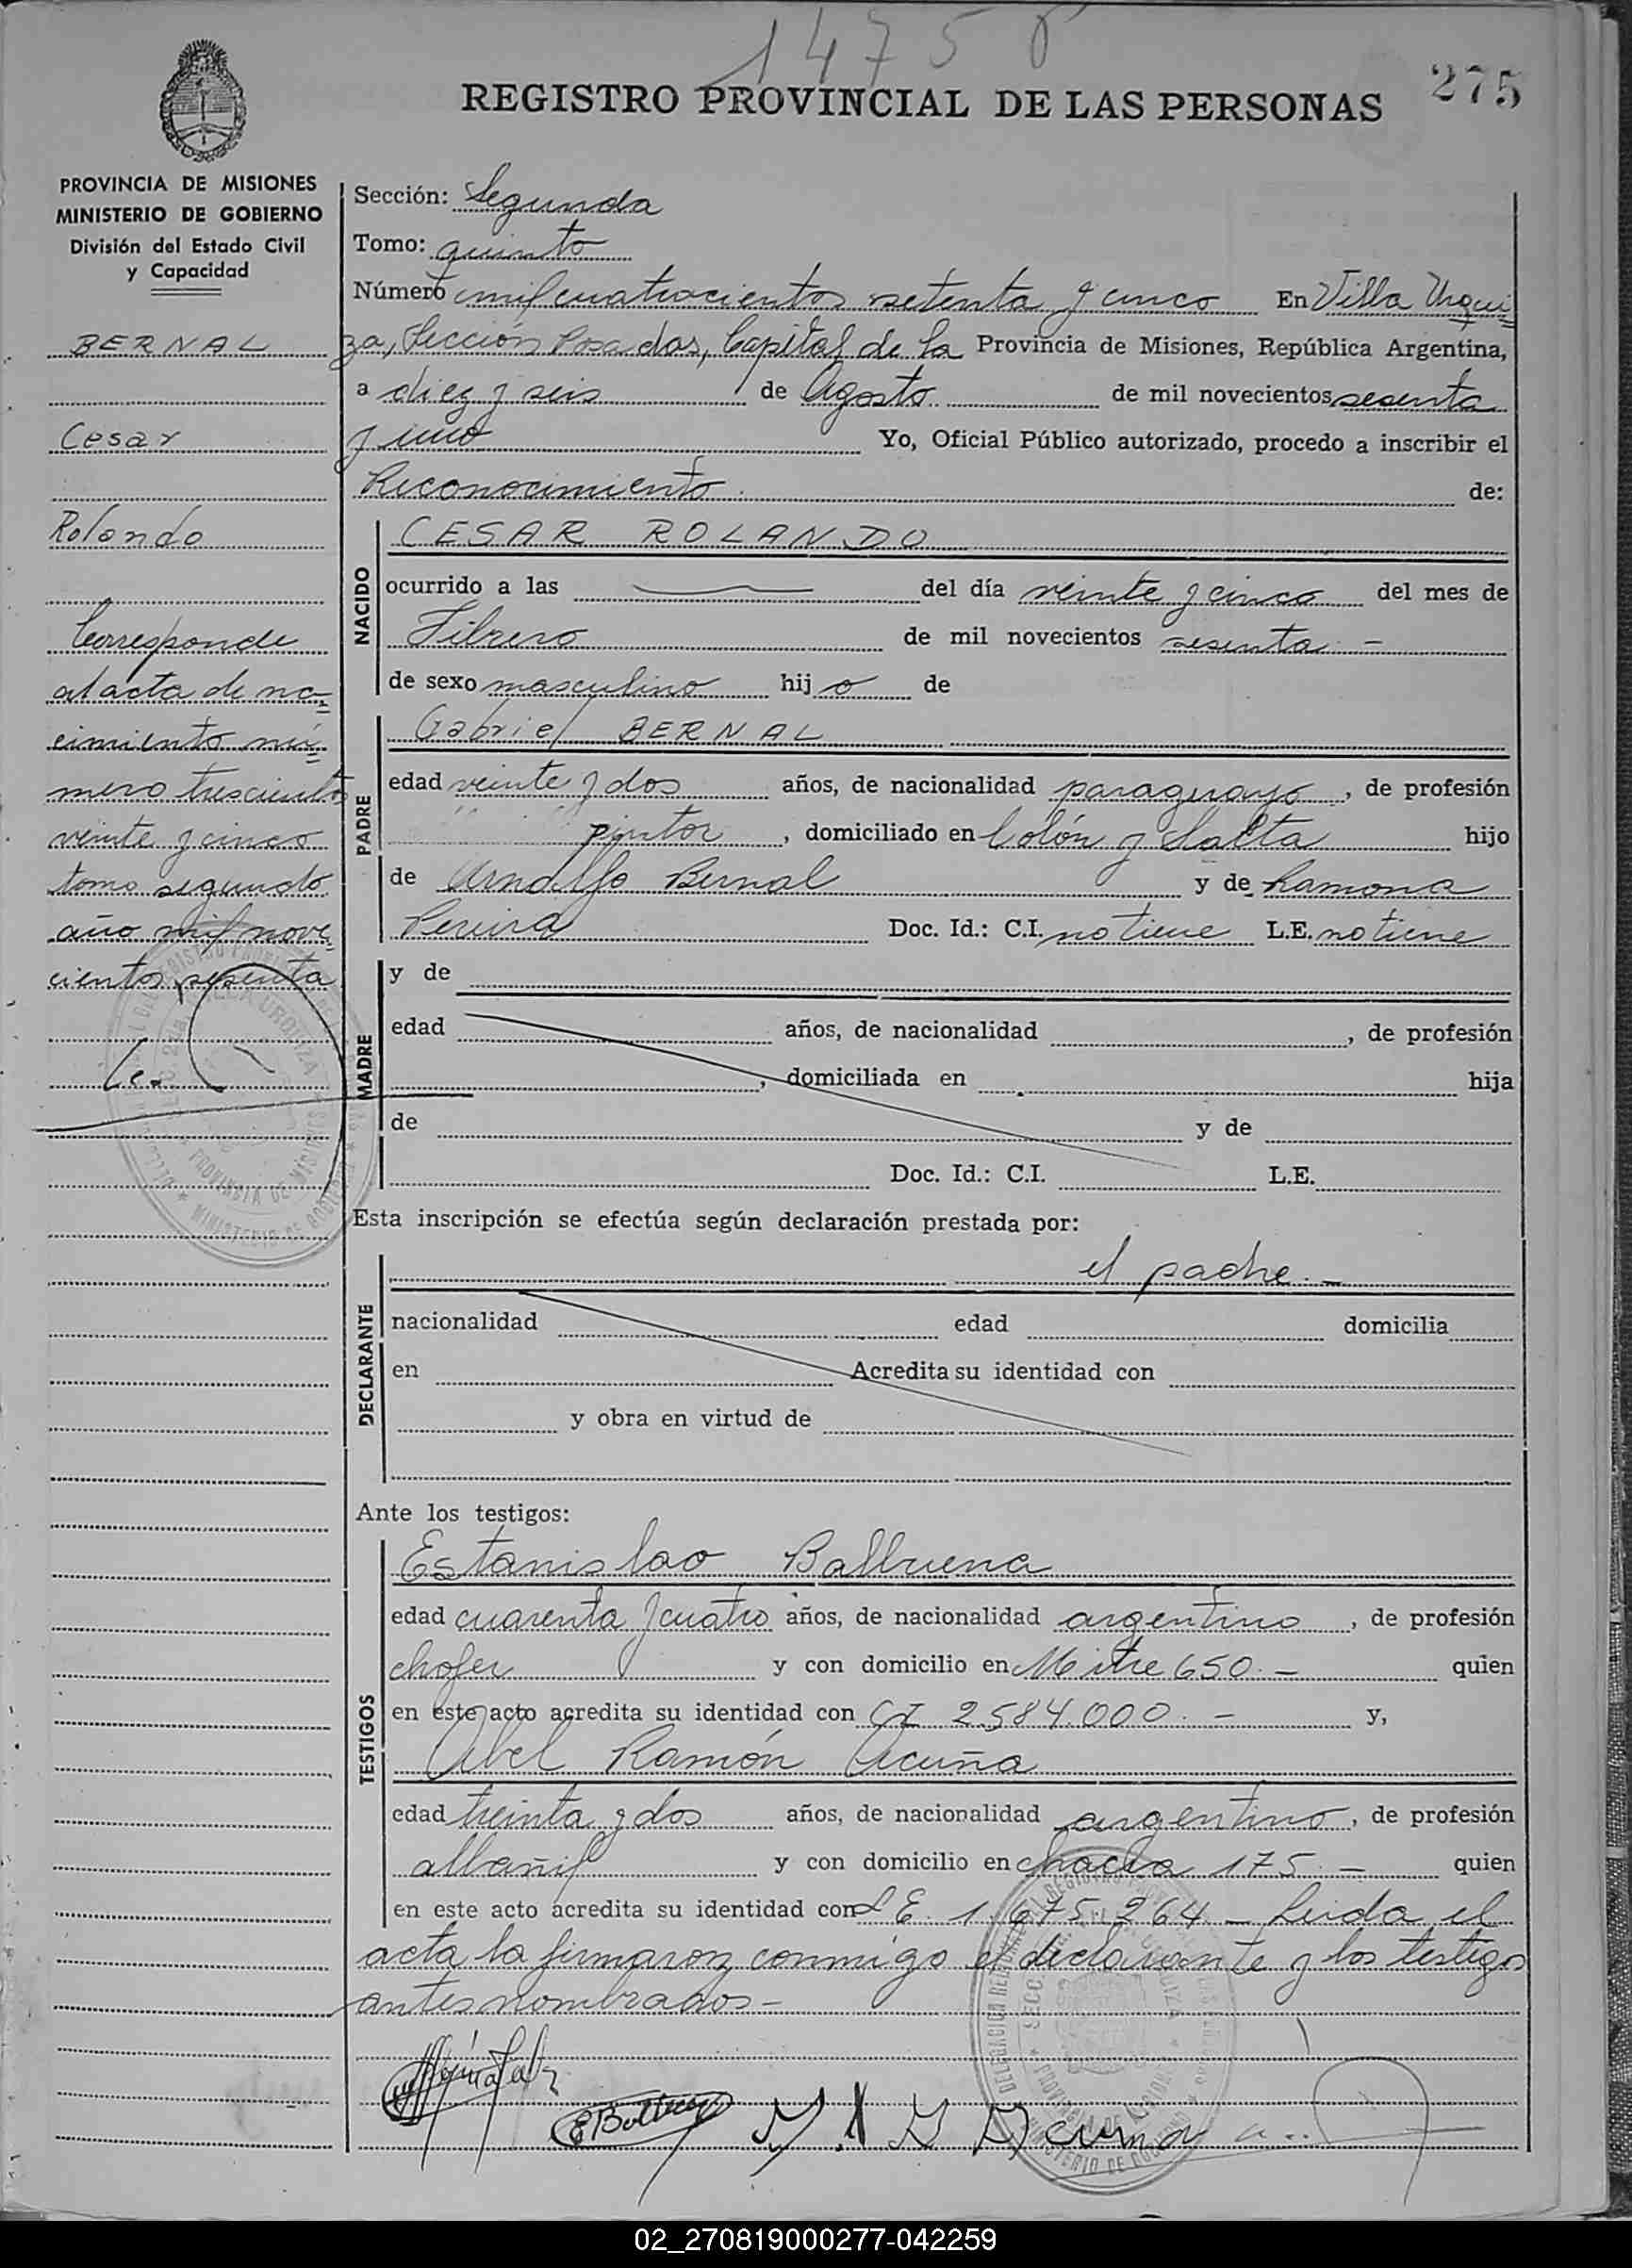 1475
275
REGISTRO PROVINCIAL DE LAS PERSONAS
PROVINCIA DE MISIONES
MINISTERIO DE GOBIERNO
División del Estado Civil
y Capacidad
BERNAL
Cesar
Rolando
Corresponde
al acta de na=
cimiento nú=
mero trescientos
veinte y cinco
tomo segundo
año mil nove=
cientos sesenta
Sección: Segunda
Tomo: quinto
Número mil cuatrocientos setenta y cinco En Villa Urqui=
za, Sección Posadas, Capital de la Provincia de Misiones, República Argentina,
a diez y seis de Agosto de mil novecientos sesenta
y uno Yo, Oficial Público autorizado, procedo a inscribir el
Reconocimiento de:
NACIDO
CESAR ROLANDO
ocurrido a las del día veinte y cinco del mes de
Febrero de mil novecientos sesenta -
de sexo masculino hijo de
PADRE
Gabriel BERNAL
edad veinte y dos años, de nacionalidad paraguayo, de profesión
pintor, domiciliado en Colón y Salta hijo
de Arnolfo Bernal y de Ramona
Pereira Doc. Id.: C.I. no tiene L.E. no tiene
MADRE
y de
edad años, de nacionalidad , de profesión
, domiciliada en hija
de y de
Doc. Id.: C.I. L.E.
Esta inscripción se efectúa según declaración prestada por:
DECLARANTE
el padre. -
nacionalidad edad domicilia
en Acredita su identidad con
y obra en virtud de
Ante los testigos:
TESTIGOS
Estanislao Balbuena
edad cuarenta y cuatro años, de nacionalidad argentino, de profesión
chofer y con domicilio en Mitre 650. - quien
en este acto acredita su identidad con CI 2584.000. - y,
Abel Ramón Acuña
edad treinta y dos años, de nacionalidad argentino, de profesión
albañil y con domicilio en chacra 175. - quien
en este acto acredita su identidad con LE. 1.675.264 - Leida el
acta la firmaron conmigo el declarante y los testigos
antes nombrados -
EBalbuena
Acuña
02_270819000277-042259